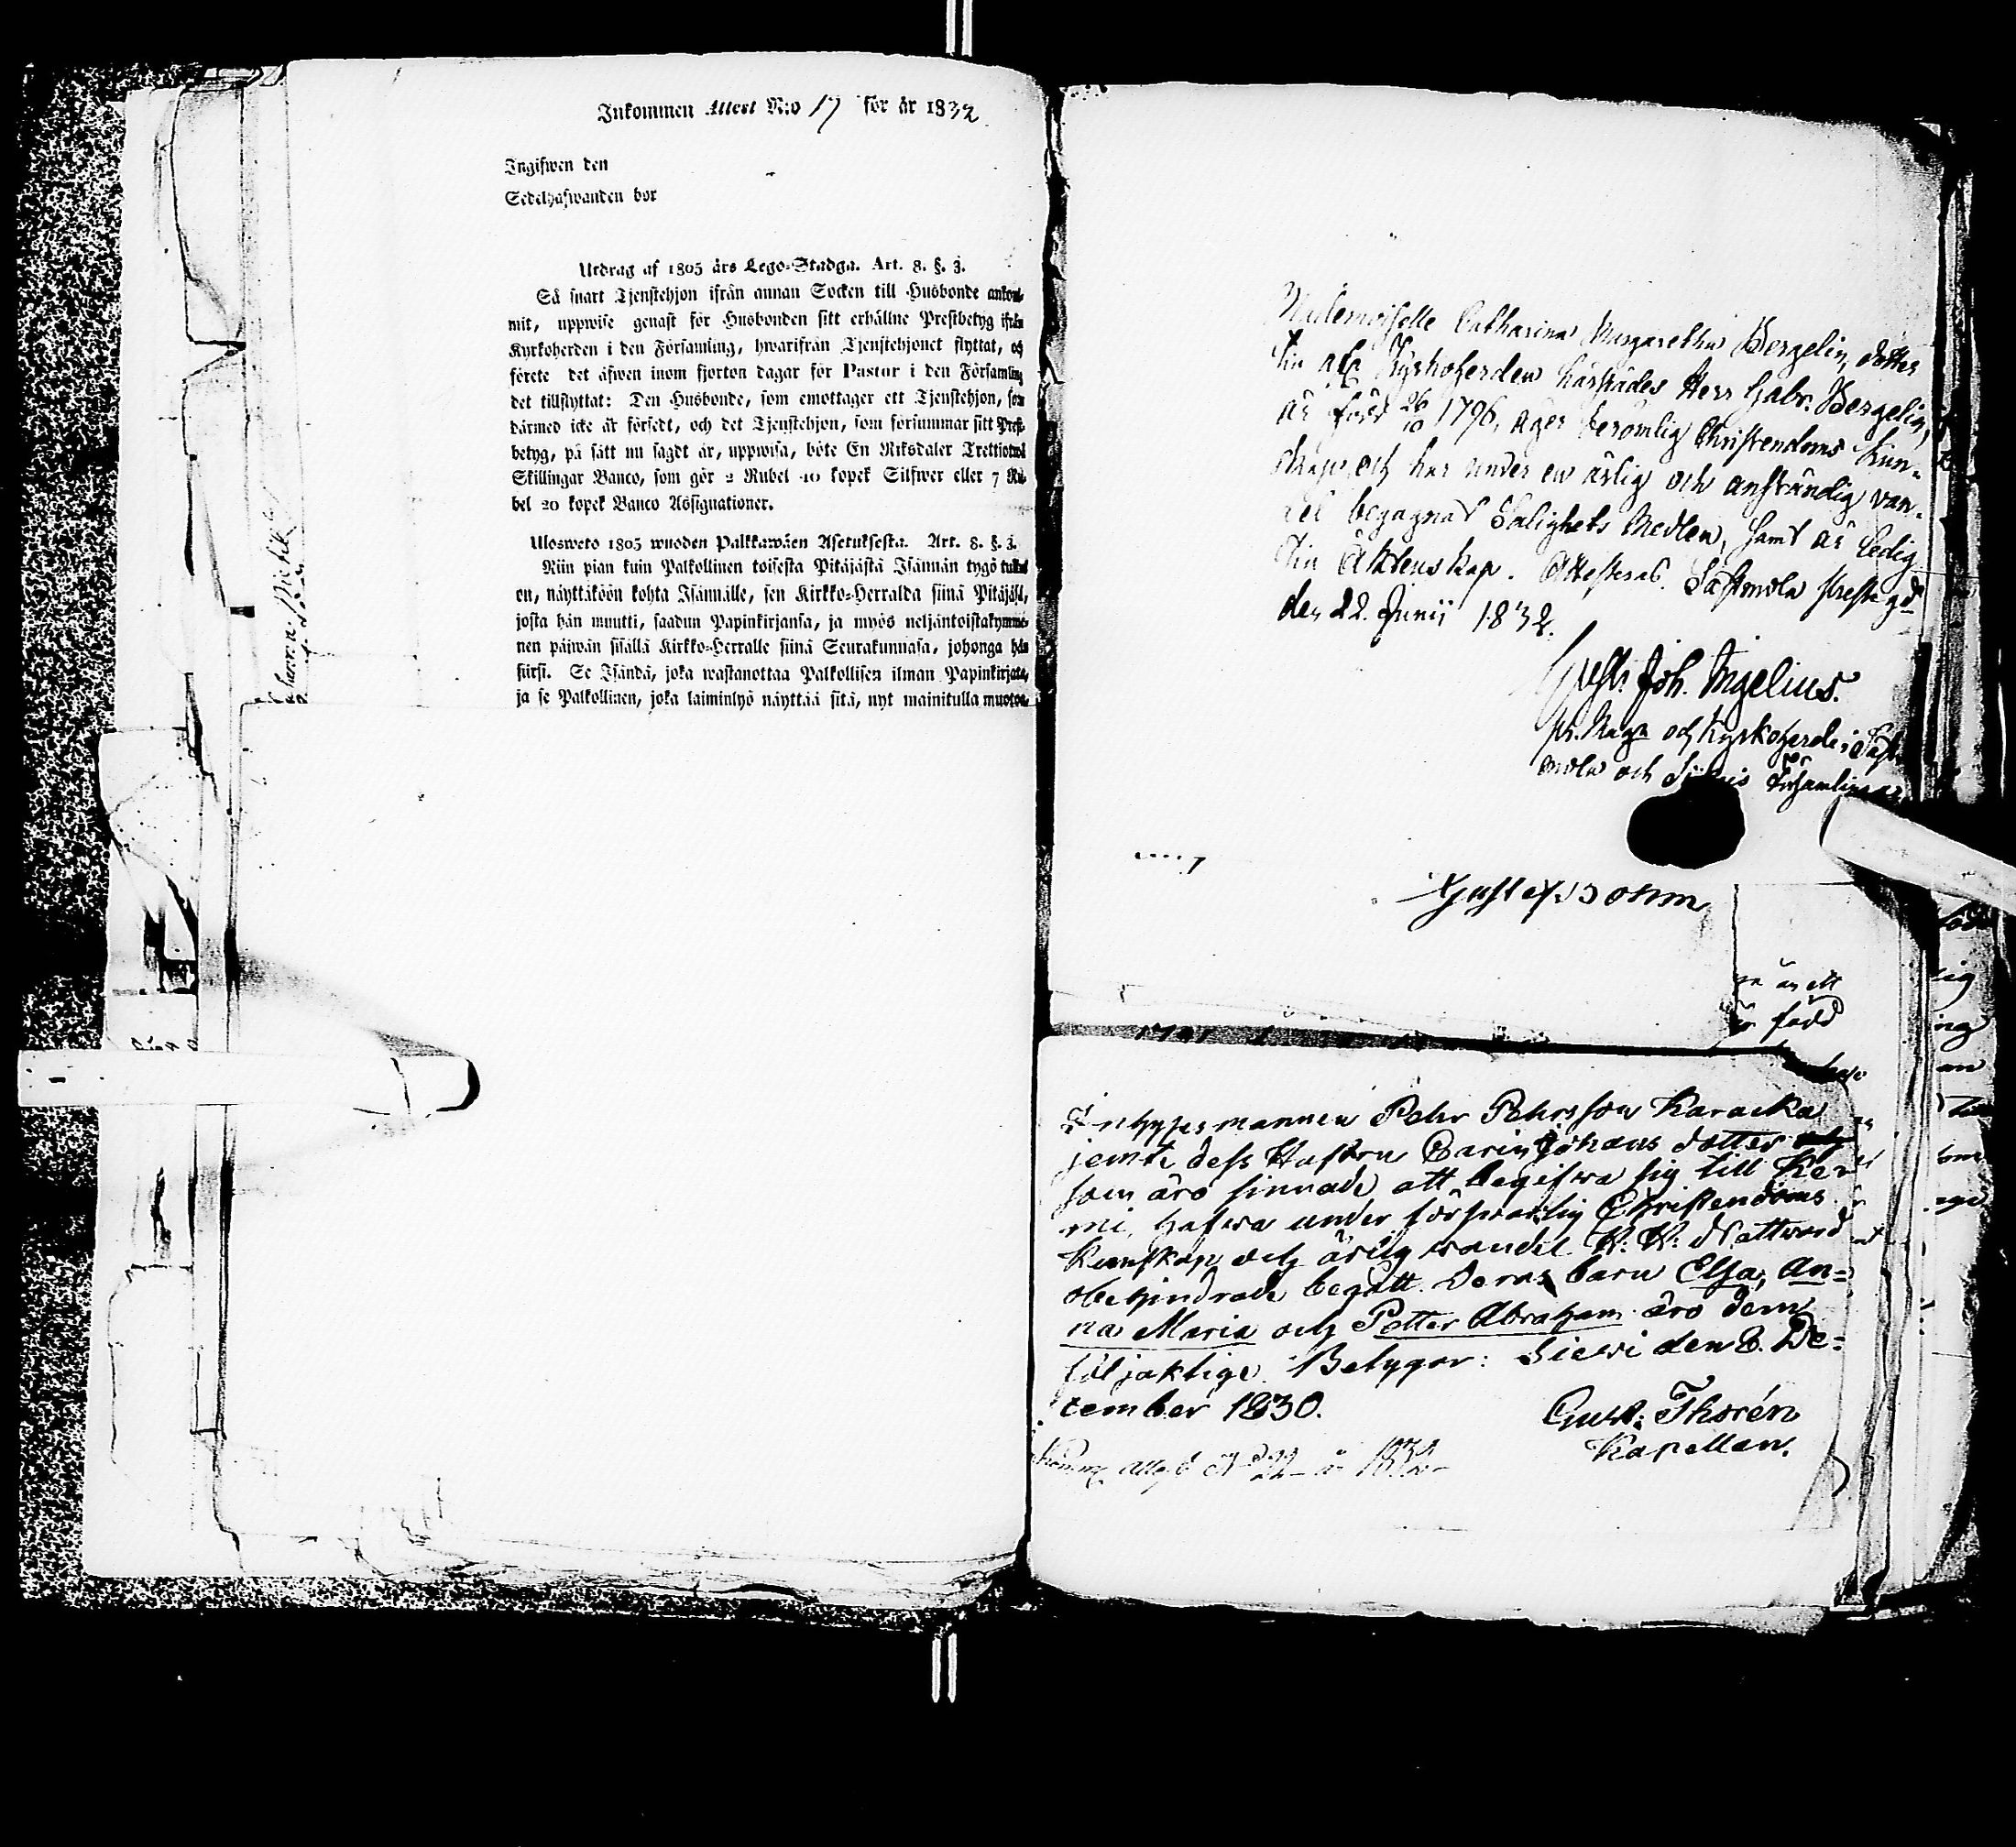 Inkommen Attest N:o 17 för år 1832
Ingifwen den
Sedelhafwanden bor
Utdrag af 1805 års Lego-Stadga. Art. 8. §. 3.
Så snart Tjenstehjon ifrån annan Socken till Husbonde ankom-
mit, uppwise genast för Husbonden sitt erhållne Prestbetyg ifrån
Kyrkoherden i den Församling, hwarifrån Tjenstehjonet flyttat, och
förete det äfwen inom fjorton dagar för Pastor i den Församling
det tillflyttat: Den Husbonde, som emottager ett Tjenstehjon, som
därmed icke är försedt, och det Tjenstehjon, som försummar sitt Prest-
betyg, på sätt nu sagdt är, uppwisa, böte En Riksdaler Trettiotwå
Skillingar Banco, som gör 2 Rubel 40 kopek Silfwer eller 7 Ru-
bel 20 kopek Banco Assignationer.
Ulosweto 1805 wuoden Palkkawäen Asetuksesta. Art. 8. §. 3.
Niin pian kuin Palkollinen toisesta Pitäjästä Isännän tygö tullut
on, näyttäköön kohta Isännälle, sen Kirkko-Herralda siinä Pitäjäsä,
josta hän muutti, saadun Papinkirjansa, ja myös neljäntoistakymme-
nen päiwän sisällä Kirkko-Herralle siinä Seurakunnasa, johonga hän
siirsi. Se Isändä, joka wastanottaa Palkollisen ilman Papinkirjata,
ja se Palkollinen, joka laiminlyö näyttää sitä, nyt mainitulla muoton-
Mademoiselle Catharina Margaretha Bergelin, dotter
till afl. Kyrkoherden härstädes Herr Gabr. Bergelin,
är född 26/10 1796, äger berömlig Christendoms kun-
skap, och har under en ärlig och anständig van-
del begagnat Salighets Medlen, samt är ledig
till Äktenskap. Attesteras. Sastmola Prestegd
den 22. Junii 1832.
Gust. Joh. Ingelius.
och Kyrkoherde i Sast-
mola och Församlingar
Gustaf Bohm
är ett
född
Inhysesmannen Pehr Pehrsson Karacka
jemte dess Hustru Carin Johans dotter
som äro sinnade att begifwa sig till Ke-
mi, hafwa under förswarlig Christendoms
Kunskap och ärlig wandel H: H: Nattward
obehindrade begått. Deras barn Elsa, An-
na Maria och Petter Abraham äro dem
följaktige. Betygar: Siewi den 8. De-
cember 1830.
Gust: Thorén
Kapellan.
N:o 22 år 1832